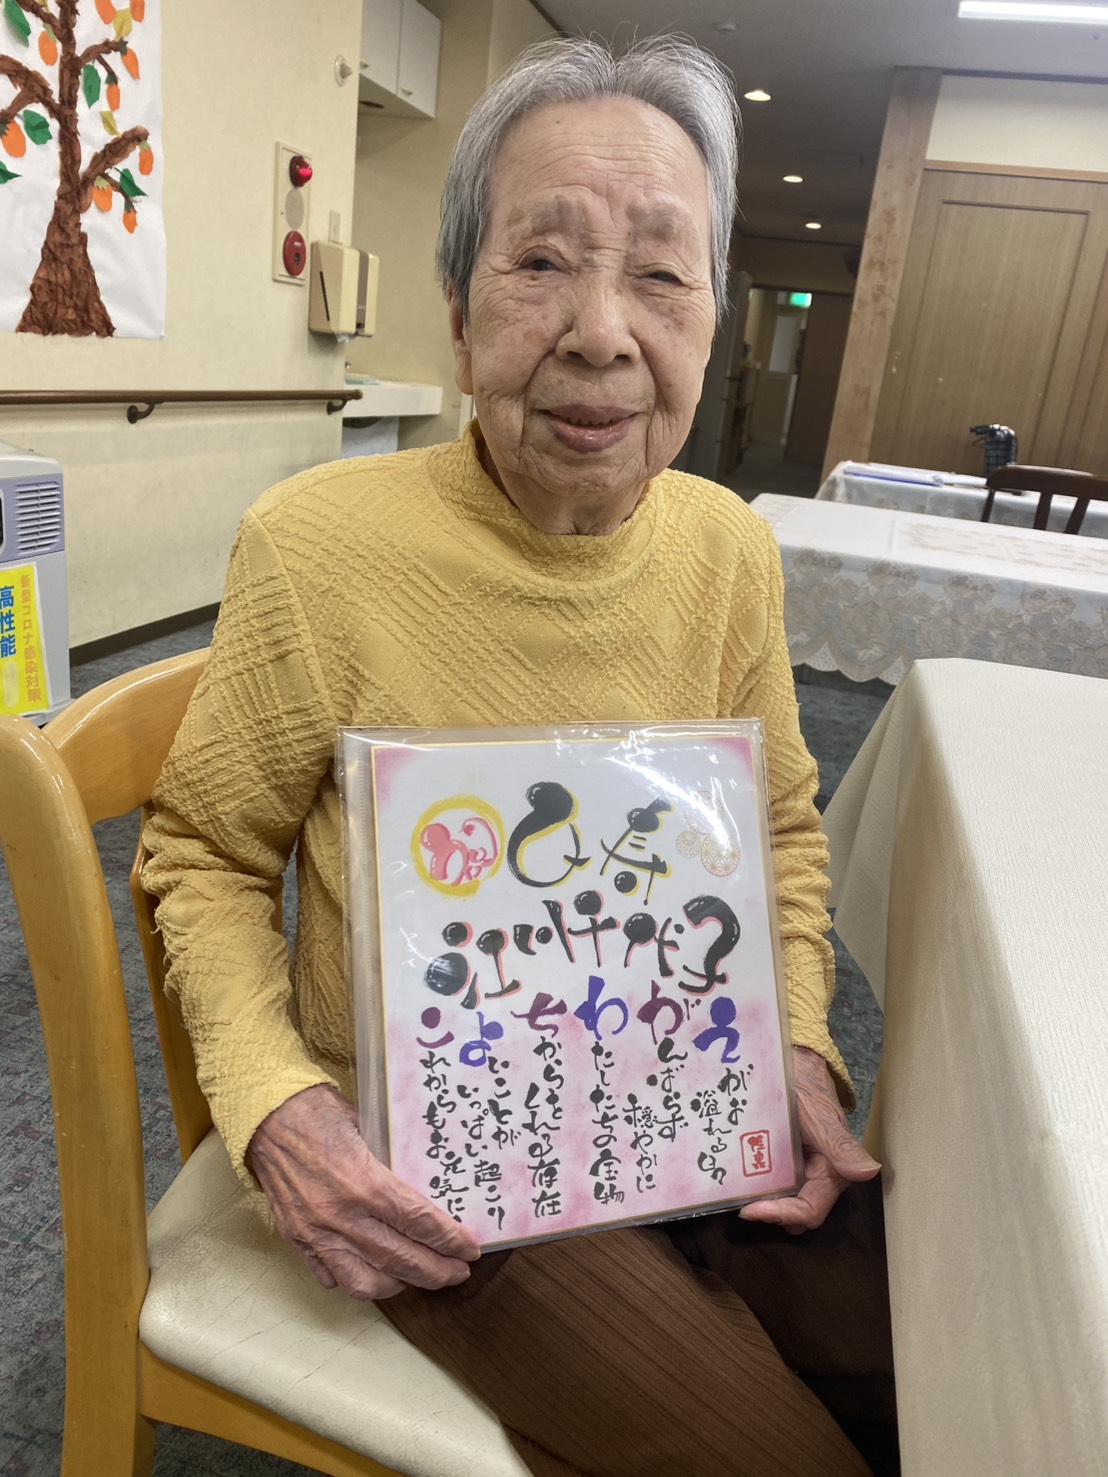 祝
寿
江川千代子
えがお
溢れる日々
がんばらず
穏やかに
わたしたちの宝物
ちからを
くれる存在
よいことが
いっぱい起こり
これからもお元気に
新型コロナ感染対策
高性能